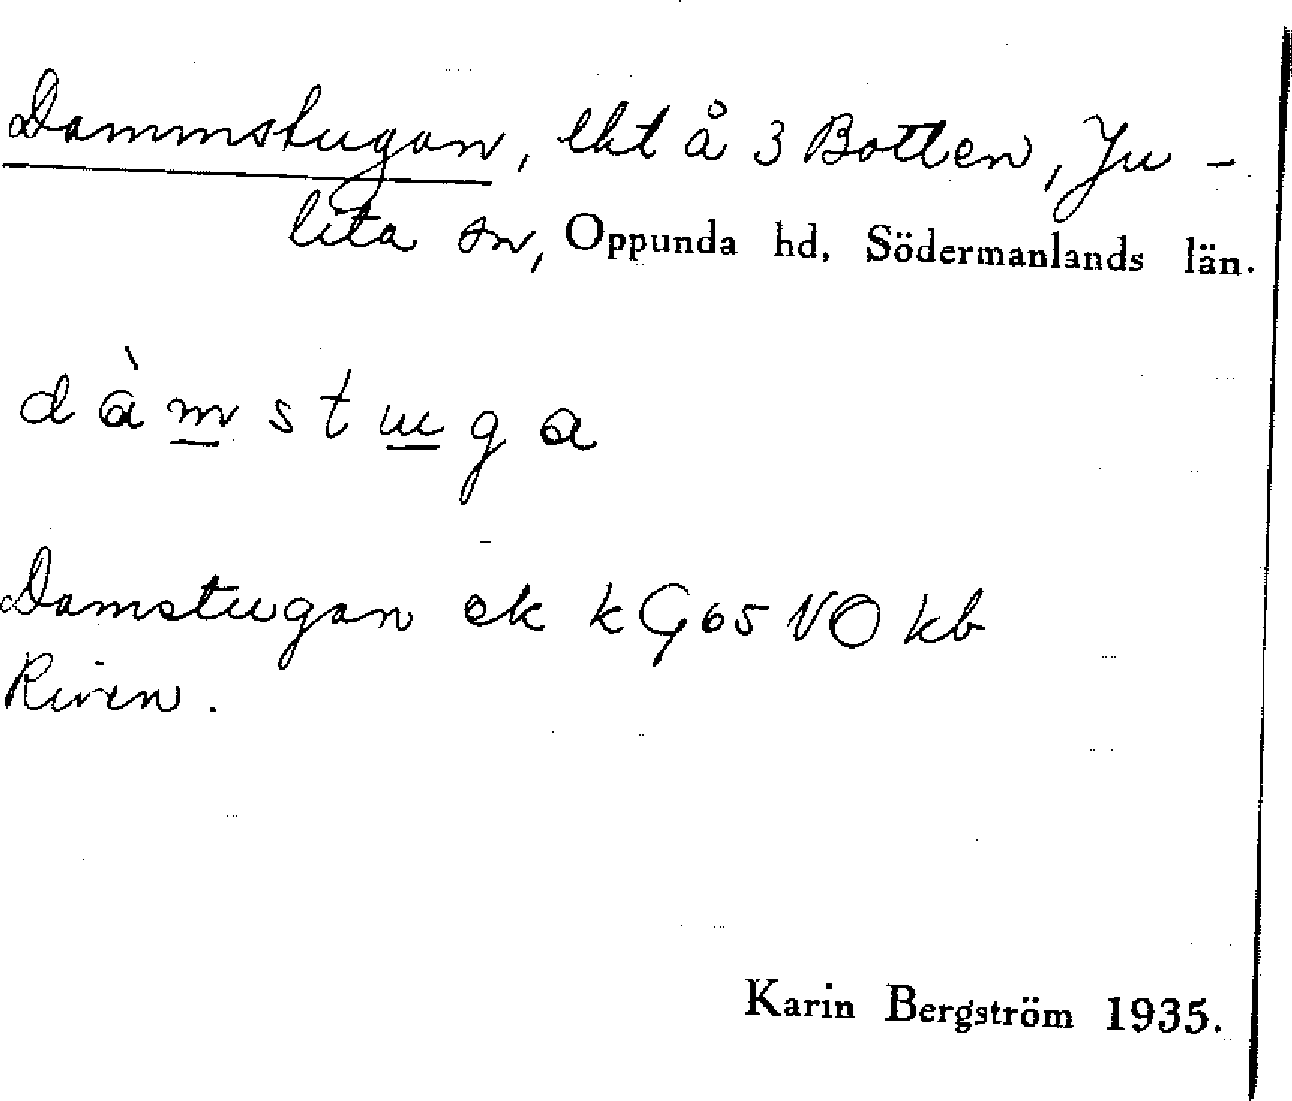 Dammstugan, lht å 3 Botten, Ju-
lita sn, Oppunda hd, Södermanlands län.
dàmstuga
Damstugan ek kG65 NO kb
Riven.
Karin Bergström 1935.